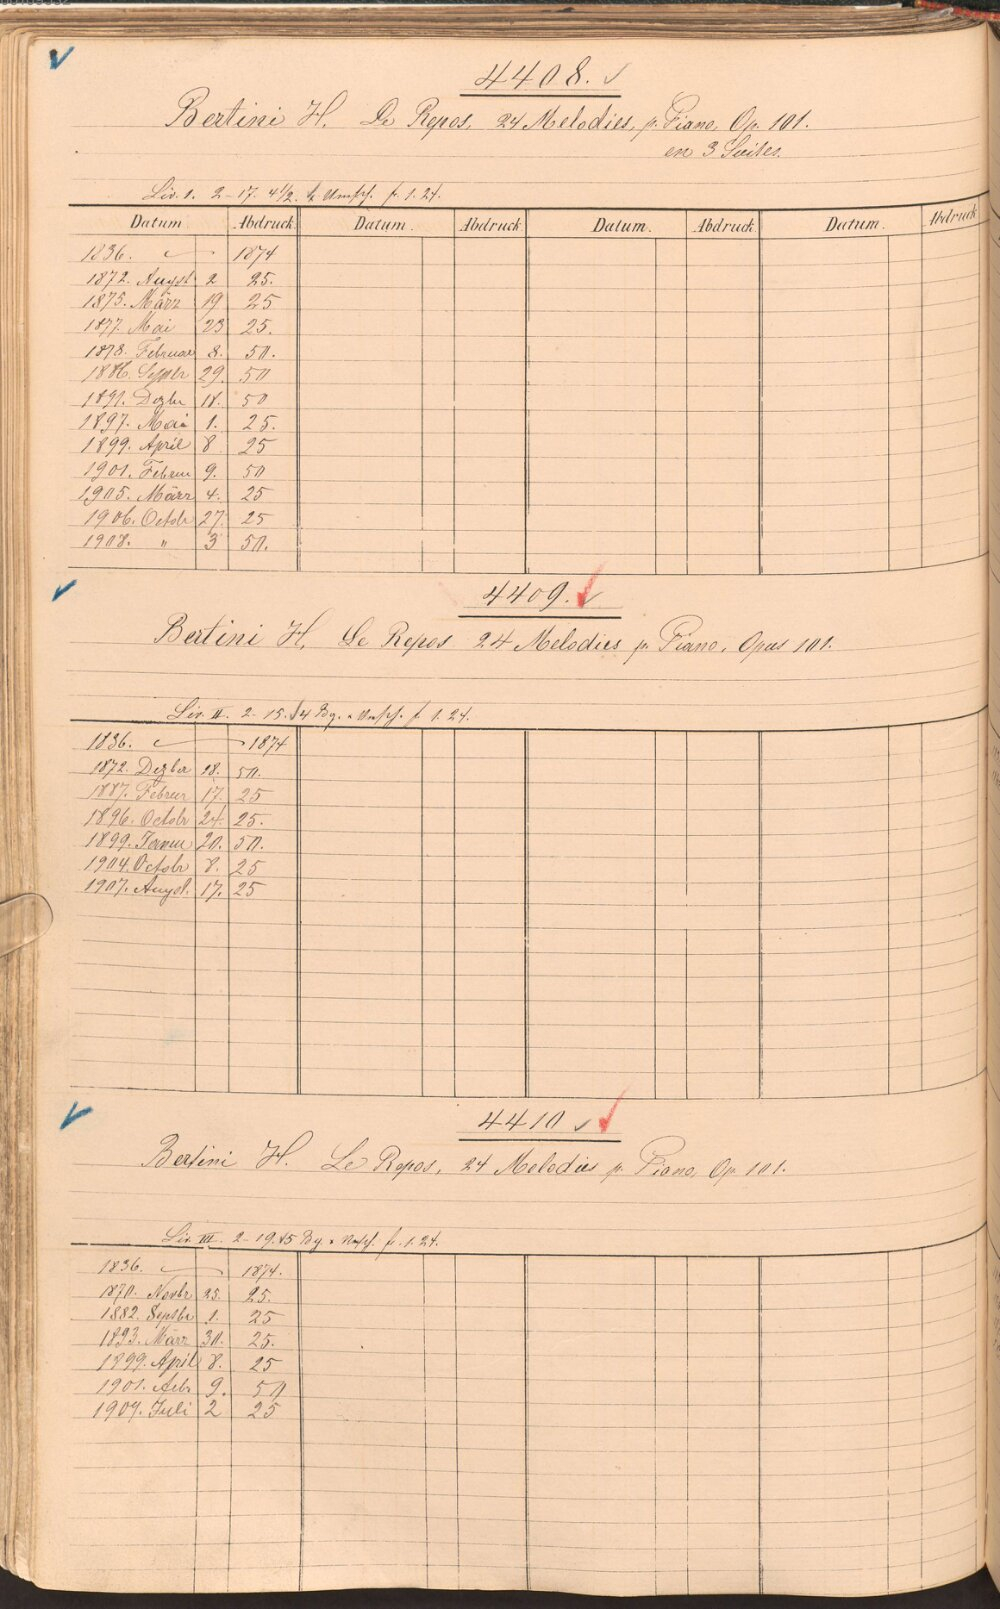 4408.
Bertini H. Le Repos, 24 Melodies, p. Piano, Op. 101.
en 3 Suites.
Liv. 1. 2-17. 4 1/2. Umschl. f. 1. 24.
Datum Abdruck Datum. Abdruck Datum. Abdruck. Datum. Abdruck
1836. 1874
1872. August 2 25.
1875. März 19 25
1877. Mai 23 25.
1878. Februar 8. 50.
1886. Septbr 29. 50
1891. Dezbr 18. 50
1897. Mai 1. 25.
1899. April 8 25
1901. Februar 9. 50
1905. März 4. 25
1906. Octobr 27. 25
1908. " 3 50.
4409.
Bertini H. Le Repos 24 Melodies p. Piano, Opus 101.
Liv. II. 2-15. 4 Bg. Umschl. f. 1. 24.
1836. 1874
1872. Dezber 18. 50.
1887. Februr 17. 25
1896. Octobr 24. 25.
1899. Janur 20. 50.
1904. Octobr 8. 25
1907. August. 17. 25
4410
Bertini H. Le Repos, 24 Melodies p. Piano, Op. 101.
Liv. III. 2-19. 5 Bg Umschl. f. 1. 24.
1836. 1874.
1870. Novbr 25. 25.
1882. Septbr 1. 25
1893. März 30. 25.
1899. April 8. 25
1901. 9. 50
1907. Juli 2 25